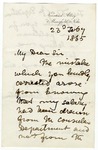 23rd Feby
1885
My dear Sir
The mistake
which you kindly
corrected arose
from knowing
that my salary
had been drawn
from the Consular
Department and
not from the